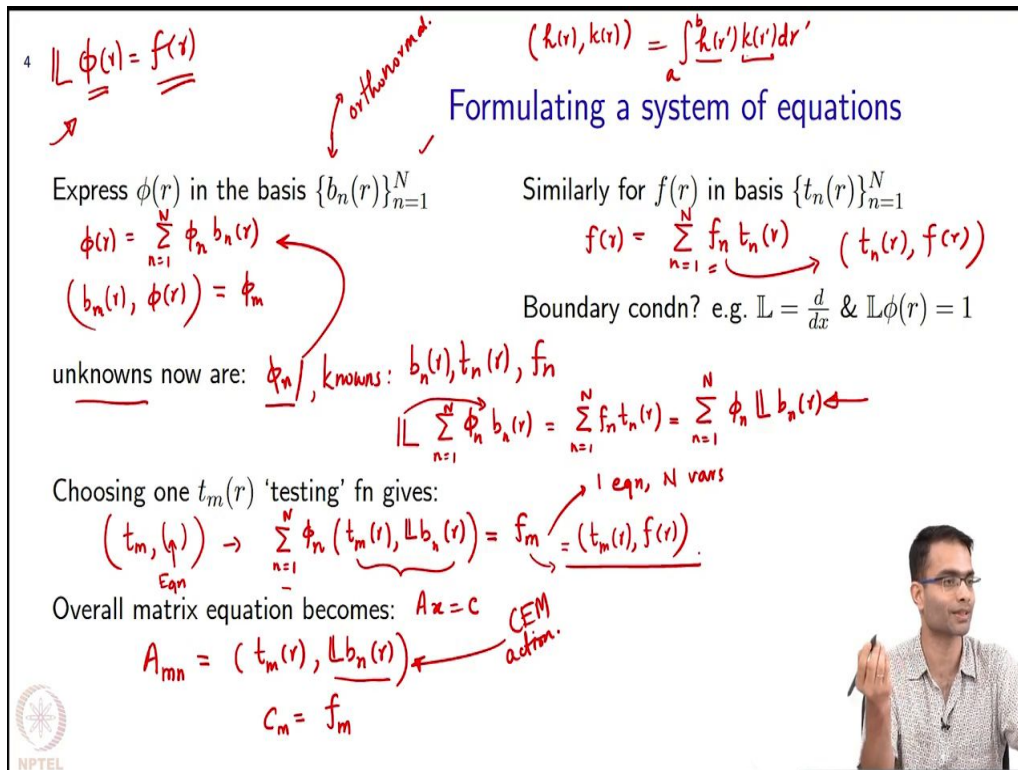 4
𝕃 ϕ(r) = f(r)
orthonormal.
(h(r), k(r)) = ∫_a^b h(r') k(r') dr'
Formulating a system of equations
Express ϕ(r) in the basis {b_n(r)}_{n=1}^N
ϕ(r) = Σ_{n=1}^N ϕ_n b_n(r)
(b_n(r), ϕ(r)) = ϕ_m
Similarly for f(r) in basis {t_n(r)}_{n=1}^N
f(r) = Σ_{n=1}^N f_n t_n(r) (t_n(r), f(r))
Boundary condn? e.g. 𝕃 = d/dx & 𝕃ϕ(r) = 1
unknowns now are: ϕ_n, knowns: b_n(r), t_n(r), f_n
𝕃 Σ_{n=1}^N ϕ_n b_n(r) = Σ_{n=1}^N f_n t_n(r) = Σ_{n=1}^N ϕ_n 𝕃 b_n(r)
Choosing one t_m(r) 'testing' fn gives:
1 eqn, N vars
(t_m, ( )) → Σ_{n=1}^N ϕ_n (t_m(r), 𝕃b_n(r)) = f_m = (t_m(r), f(r)).
Eqn
Overall matrix equation becomes: Ax = c
CEM action.
A_{mn} = (t_m(r), 𝕃b_n(r))
c_m = f_m
NPTEL